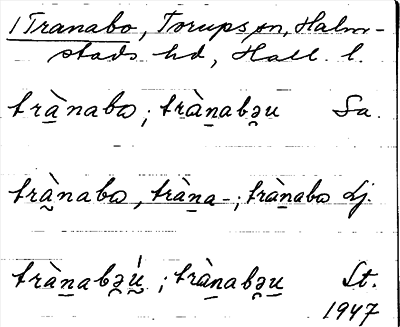 1 Tranabo, Torups sn, Halm-
stads hd, Hall. l.
trà̱nabɷ; trà̱nabə̯u Sa.
trà̰nabɷ, trà̱na-; trà̱nabɷ Lj.
trà̱nabə̯ṵ́; trà̱nabə̯u̱ St.
1947